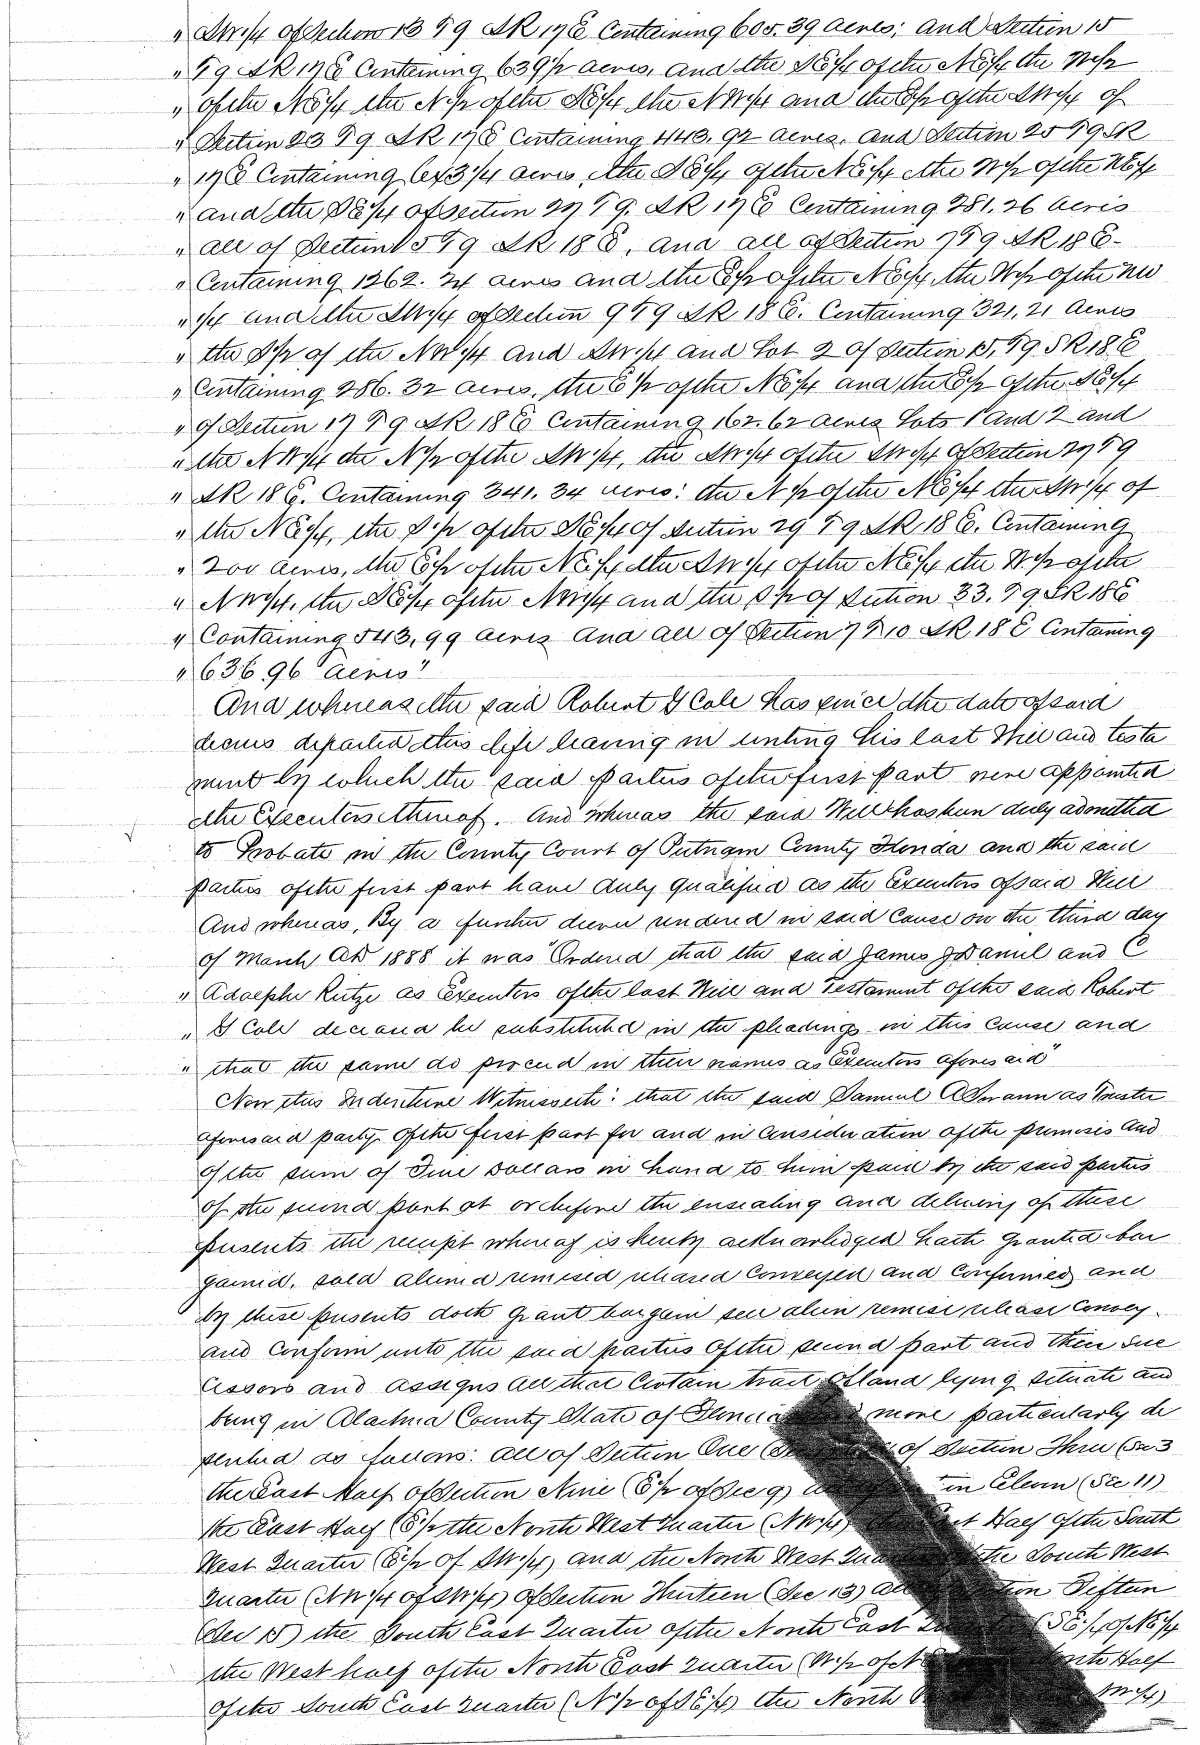 " SW 1/4 of Section 13 T 9 S R 17 E Containing 605.39 acres; and Section 15
" T 9 S R 17 E Containing 639 1/2 acres, and the SE 1/4 of the NE 1/4 the W 1/2
" of the NE 1/4 the N 1/2 of the SE 1/4, the NW 1/4 and the E 1/2 of the SW 1/4 of
" Section 23 T 9 S R 17 E Containing 443.92 acres. and Section 25 T 9 S R
" 17 E Containing 643 1/4 acres, the SE 1/4 of the NE 1/4 the W 1/2 of the NE 1/4
" and the SE 1/4 of section 27 T 9. S R 17 E Containing 281.26 acres
" all of Section 5 T 9 S R 18 E, and all of Section 7 T 9 S R 18 E-
" Containing 1262.24 acres and the E 1/2 of the NE 1/4, the W 1/2 of the NW
" 1/4 and the SW 1/4 of Section 9 T 9 S R 18 E. Containing 321,21 acres
" the S 1/2 of the NW 1/4 and SW 1/4 and Lot 2 of Section 15, T 9 S R 18 E
" Containing 286.32 acres, the E 1/2 of the NE 1/4 and the E 1/2 of the SE 1/4
" of Section 17 T 9 S R 18 E Containing 162.62 acres Lots 1 and 2 and
" the NW 1/4 the N 1/2 of the SW 1/4, the SW 1/4 of the SW 1/4 of Section 27 T 9
" S R 18 E. Containing 341.34 acres: the N 1/2 of the NE 1/4 the SW 1/4 of
" the NE 1/4, the S 1/2 of the SE 1/4 of Section 29 T 9 S R 18 E. Containing
" 200 acres, the E 1/2 of the NE 1/4 the SW 1/4 of the NE 1/4 the W 1/2 of the
" NW 1/4, the SE 1/4 of the NW 1/4 and the S 1/2 of Section 33. T 9 S R 18 E
" Containing 543,99 acres and all of Section 7 T 10 S R 18 E Containing
" 636.96 acres"
And whereas the said Robert G Cole has since the date of said
decrees departed this life leaving in writing his last Will and testa
ment by which the said parties of the first part were appointed
the Executors thereof. And whereas the said Will has been duly admitted
to Probate in the County Court of Putnam County Florida and the said
parties of the first part have duly qualified as the Executors of said Will
And whereas, By a further decree rendered in said Cause on the third day
of March AD 1888 it was "Ordered that the said James J Daniel and C
" Adolphe Rutze as Executors of the last Will and Testament of the said Robert
" G Cole deceased be substituted in the pleadings in this cause and
" that the same do proceed in their names as Executors aforesaid"
Now this Indenture Witnesseth: that the said Samuel A Swann as Trustee
aforesaid party of the first part for and in consideration of the premises and
of the sum of Five Dollars in hand to him paid by the said parties
of the second part at or before the ensealing and delivery of these
presents the receipt whereof is hereby acknowledged hath granted bar
gained, sold aliened remised released conveyed and confirmed and
by these presents doth grant bargain sell alien remise release convey
and Confirm unto the said parties of the second part and their suc
cessors and assigns all that certain tract of land lying situate and
being in Alachua County State of Florida more particularly de
scribed as follows: all of Section One of Section Three (Sec 3
the East Half of Section Nine (E 1/2 of Sec 9) Eleven (Sec 11)
the East Half (E 1/2 the North West Quarter (NW 1/4) Half of the South
West Quarter (E 1/2 of SW 1/4) and the North West Quarter the South West
Quarter (NW 1/4 of SW 1/4) of Section Thirteen (Sec 13) all Fifteen
(Sec 15) the South East Quarter of the North East (SE 1/4 of NE 1/4
the West half of the North East Quarter (W 1/2 of North Half
of the South East Quarter (N 1/2 of SE 1/4) the North W 1/4)